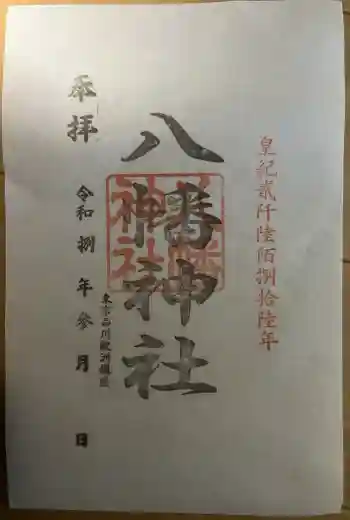 皇紀貳仟陸佰捌拾陸年
八幡神社
八幡
神社
東京品川鮫洲鎮座
奉拝
令和捌年参月 日